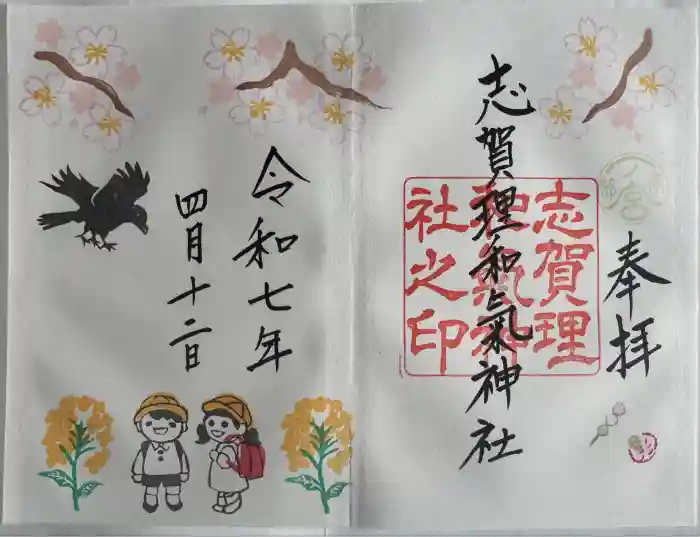 奉拝
志賀理和氣神社
志賀理
和氣神
社之印
一宮
令和七年
四月十二日